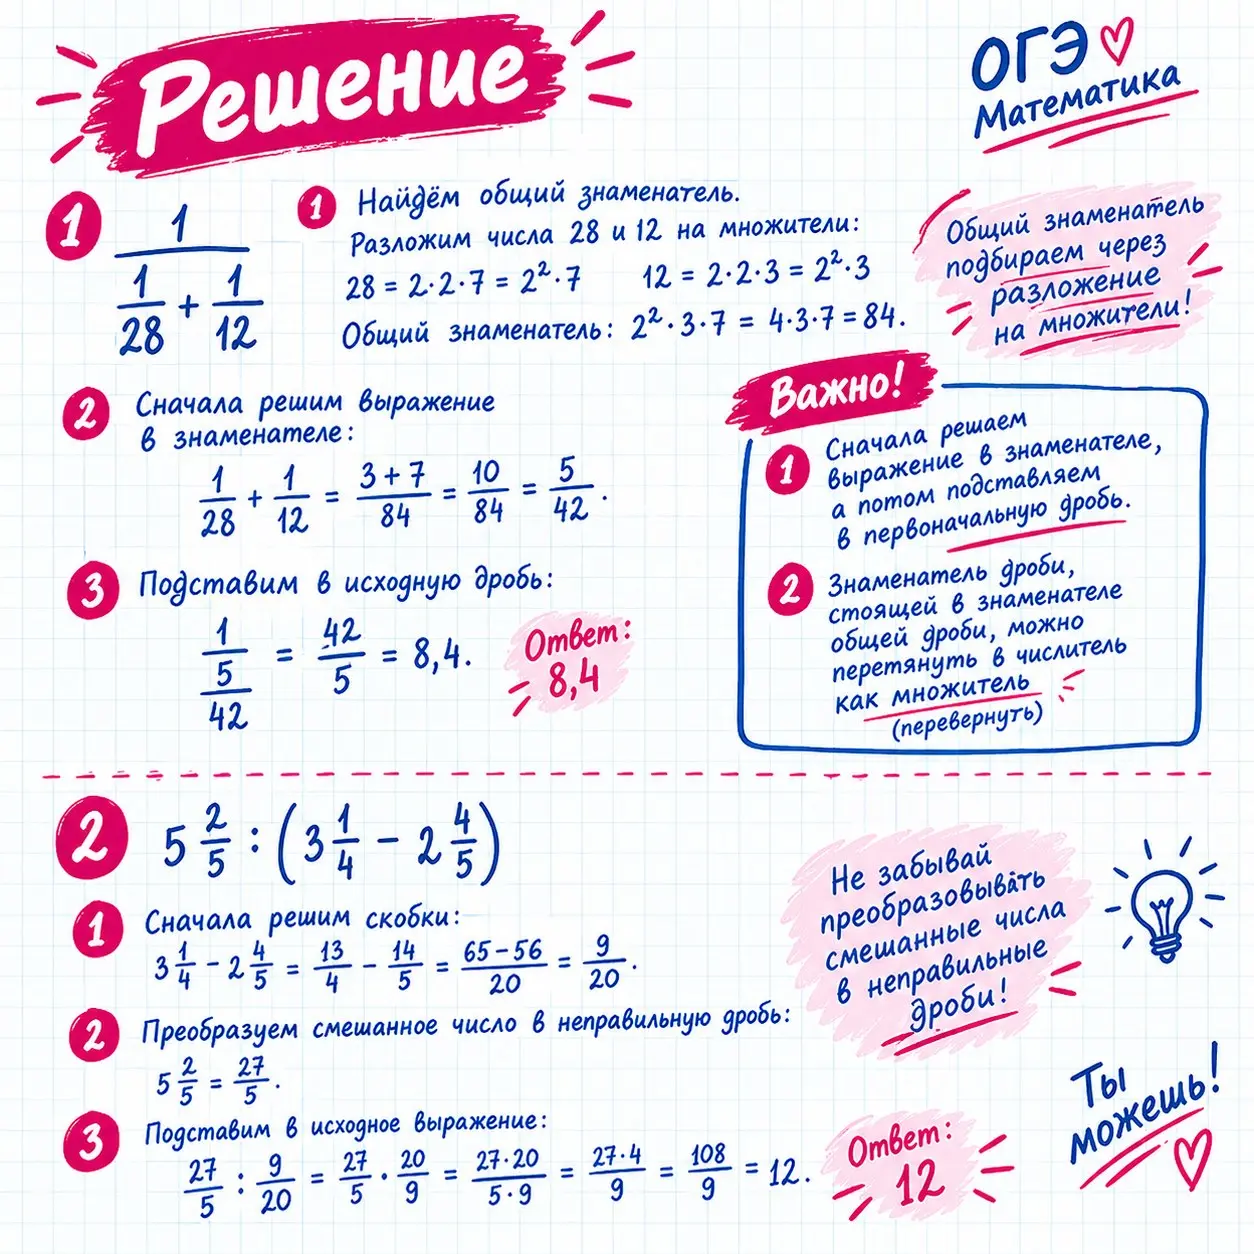 Решение
ОГЭ
Математика
1
1/(1/28 + 1/12)
1 Найдём общий знаменатель.
Разложим числа 28 и 12 на множители:
28 = 2·2·7 = 2²·7    12 = 2·2·3 = 2²·3
Общий знаменатель: 2²·3·7 = 4·3·7 = 84.
Общий знаменатель
подбираем через
разложение
на множители!
2 Сначала решим выражение
в знаменателе:
1/28 + 1/12 = (3 + 7)/84 = 10/84 = 5/42.
3 Подставим в исходную дробь:
1/(5/42) = 42/5 = 8,4.
Ответ:
8,4
Важно!
1 Сначала решаем
выражение в знаменателе,
а потом подставляем
в первоначальную дробь.
2 Знаменатель дроби,
стоящей в знаменателе
общей дроби, можно
перетянуть в числитель
как множитель
(перевернуть)
2
5 2/5 : (3 1/4 − 2 4/5)
1 Сначала решим скобки:
3 1/4 − 2 4/5 = 13/4 − 14/5 = (65 − 56)/20 = 9/20.
2 Преобразуем смешанное число в неправильную дробь:
5 2/5 = 27/5.
3 Подставим в исходное выражение:
27/5 : 9/20 = 27/5 · 20/9 = (27·20)/(5·9) = (27·4)/9 = 108/9 = 12.
Не забывай
преобразовывать
смешанные числа
в неправильные
дроби!
Ответ:
12
Ты
можешь!